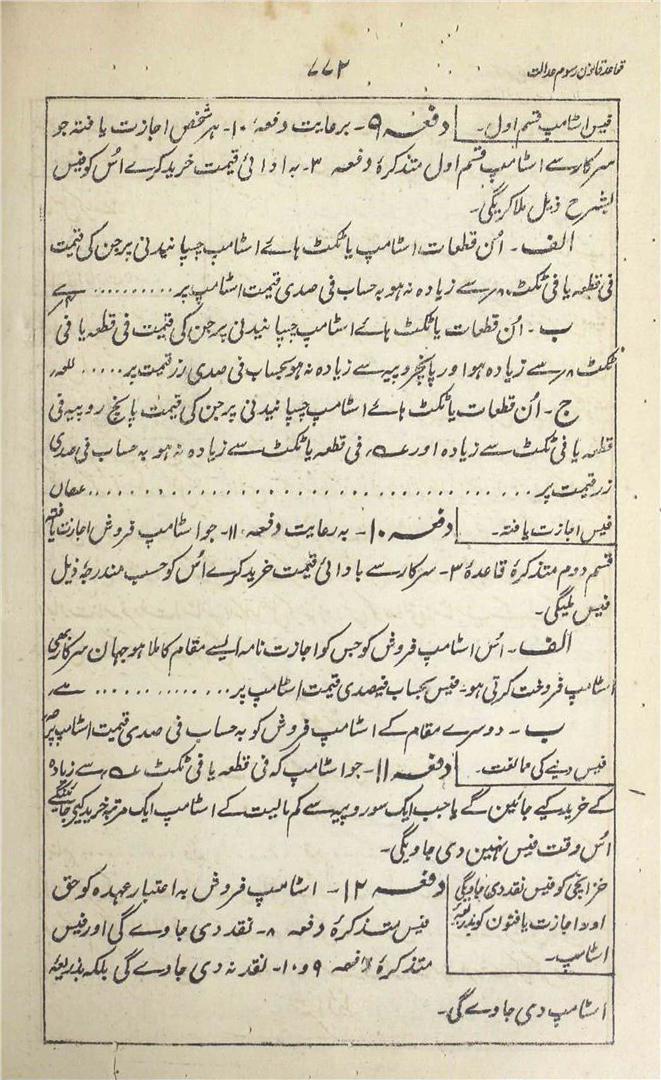 قواعد قانون رسوم عدالت
۷۷۲
فیس اسٹامپ قسم اول۔
دفعہ ۹۔ برعایت دفعہ ۱۰۔ ہر شخص اجازت یافتہ جو
سرکار سے اسٹامپ قسم اول متذکرۂ دفعہ ۳۔ بہ ادائی قیمت خرید کرے اُس کو فیس
بشرح ذیل ملا کریگی۔
الف۔ اُن قطعات اسٹامپ یا ٹکٹ ہائے اسٹامپ چسپانیدنی پر جن کی قیمت
فی قطعہ یا فی ٹکٹ ۸؍ سے زیادہ نہ ہو بہ حساب فی صدی قیمت اسٹامپ پر ..........
ب۔ اُن قطعات یا ٹکٹ ہائے اسٹامپ چسپانیدنی پر جن کی قیمت فی قطعہ یا فی
ٹکٹ ۸؍ سے زیادہ ہو اور پانچ روپیہ سے زیادہ نہ ہو بحساب فی صدی زر قیمت پر .....
ج۔ اُن قطعات یا ٹکٹ ہائے اسٹامپ چسپانیدنی پر جن کی قیمت پانچ روپیہ فی
قطعہ یا فی ٹکٹ سے زیادہ اور فی قطعہ یا ٹکٹ سے زیادہ نہ ہو بہ حساب فی صدی
زر قیمت پر ..............................
فیس اجازت یافتہ۔
دفعہ ۱۰۔ بہ رعایت دفعہ ۱۱۔ جو اسٹامپ فروش اجازت یافتہ
قسم دوم متذکرۂ قاعدۂ ۳۔ سرکار سے بادائی قیمت خرید کرے اُس کو حسب مندرجۂ ذیل
فیس ملیگی۔
الف۔ اُس اسٹامپ فروش کو جس کو اجازت نامہ ایسے مقام کا ملا ہو جہان سرکار بھی
اسٹامپ فروخت کرتی ہو۔ فیس بحساب فیصدی قیمت اسٹامپ پر ..............
ب۔ دوسرے مقام کے اسٹامپ فروش کو بہ حساب فی صدی قیمت اسٹامپ پر
فیس دینے کی ممالغت۔
دفعہ ۱۱۔ جو اسٹامپ کہ فی قطعہ یا فی ٹکٹ سے زیادہ
کے خرید کیے جائین گے یا جب ایک سو روپیہ سے کم مالیت کے اسٹامپ ایک مرتبہ خرید کیے جائینگے
اُس وقت فیس نہین دی جاویگی۔
خزانچی کو فیس نقد دی جاویگی
اور اجازت یافتون کو بذریعۂ
اسٹامپ۔
دفعہ ۱۲۔ اسٹامپ فروش بہ اعتبار عہدہ کو حق
فیس متذکرۂ دفعہ ۸۔ نقد دی جاوے گی اور فیس
متذکرۂ دفعہ ۹ و ۱۰۔ نقد نہ دی جاوے گی بلکہ بذریعۂ
اسٹامپ دی جاوے گی۔